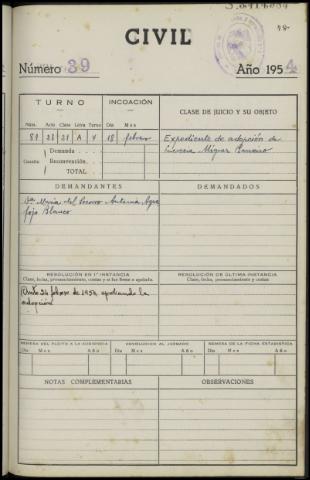 CIVIL
Número 39 Año 1954
TURNO INCOACIÓN CLASE DE JUICIO Y SU OBJETO
Núm. Acto Clase Letra Turno Día Mes
21 A 4 18 febrero Expediente de adopción de
Demanda
Cuantía Reconvención
TOTAL
DEMANDANTES DEMANDADOS
Dª María del Socorro Antonia
Blanco
RESOLUCIÓN EN 1ª INSTANCIA RESOLUCIÓN DE ÚLTIMA INSTANCIA
Clase, fecha, pronunciamiento, costas y si fue firme o apelada. Clase, fecha, pronunciamiento y costas.
Auto 24 febrero de 1954, aprobando la
adopción
REMESA DEL PLEITO A LA AUDIENCIA DEVOLUCIÓN AL JUZGADO REMESA DE LA FICHA ESTADÍSTICA
Día Mes Año Día Mes Año Día Mes Año
NOTAS COMPLEMENTARIAS OBSERVACIONES